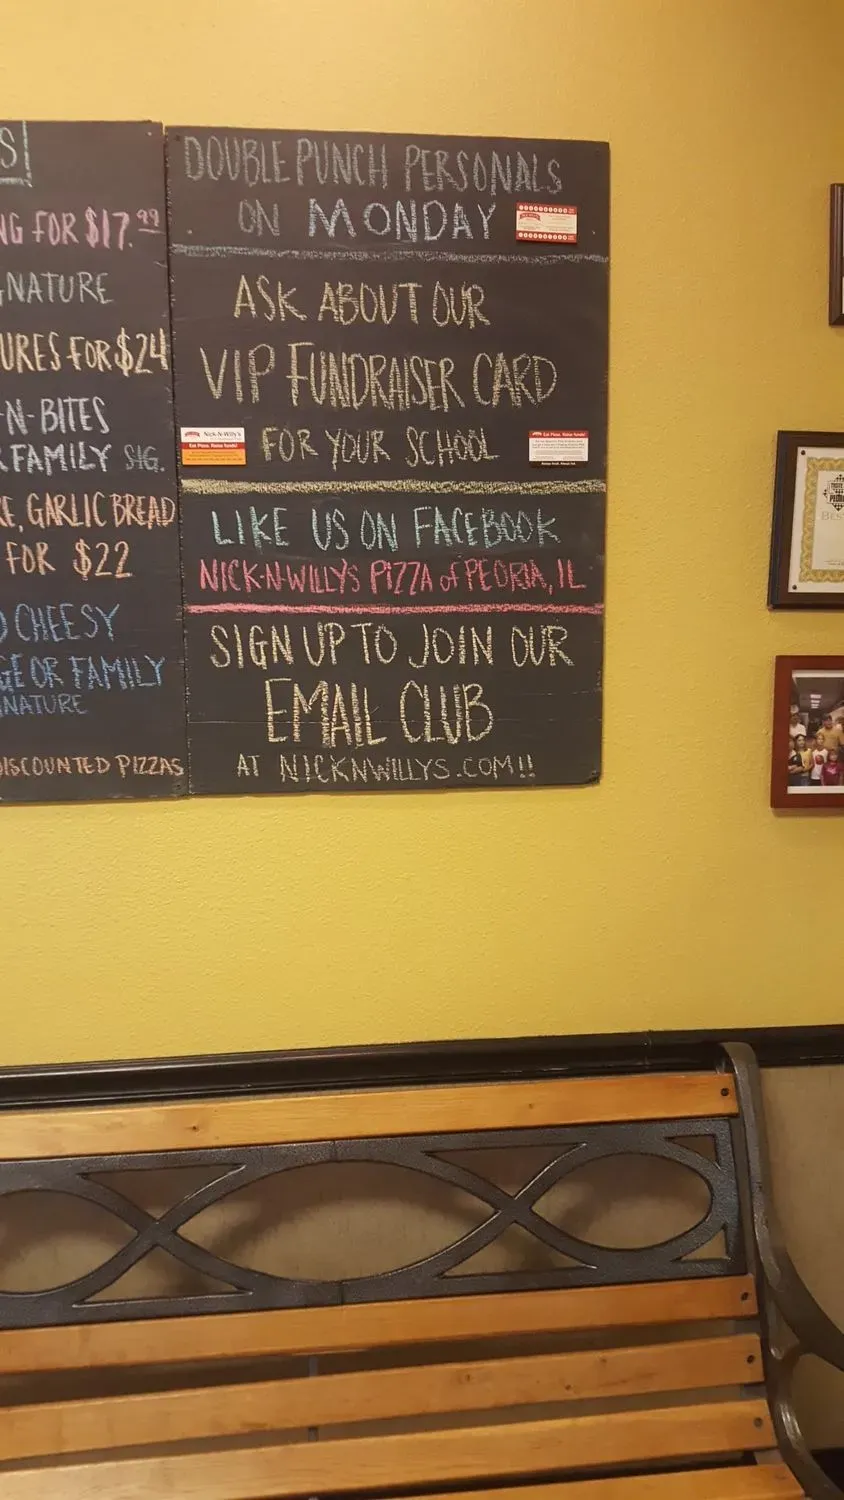 S
NG FOR $17.99
GNATURE
URES FOR $24
-N-BITES
R FAMILY SIG.
KE, GARLIC BREAD
FOR $22
D CHEESY
GE OR FAMILY
NATURE
DISCOUNTED PIZZAS
DOUBLE PUNCH PERSONALS
ON MONDAY
ASK ABOUT OUR
VIP FUNDRAISER CARD
FOR YOUR SCHOOL
Nick-N-Willy's
Eat Pizza. Raise funds!
Eat Pizza. Raise funds!
LIKE US ON FACEBOOK
NICK-N-WILLY'S PIZZA of PEORIA, IL
SIGN UP TO JOIN OUR
EMAIL CLUB
AT NICKNWILLYS.COM!!